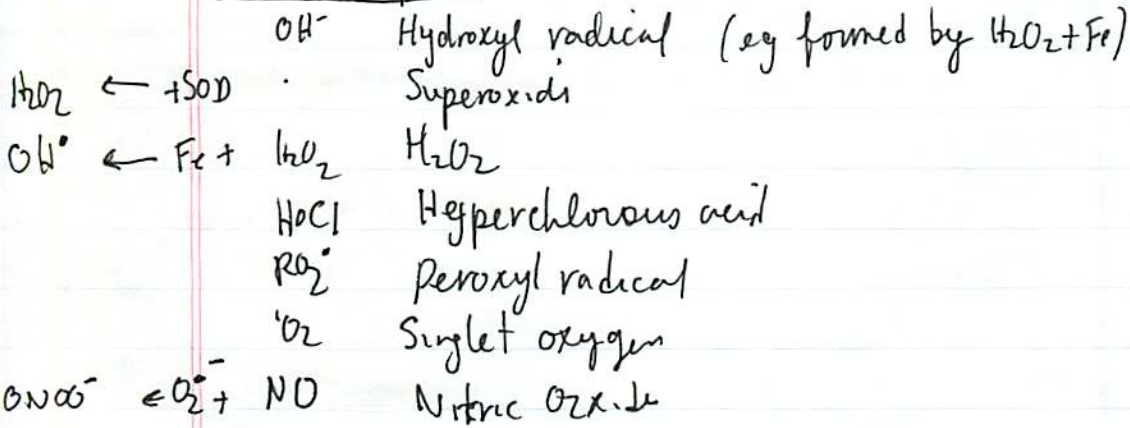 OH⁻ Hydroxyl radical (eg formed by H₂O₂+Fe)
H₂O₂ ← +SOD · Superoxids
OH• ← Fe + H₂O₂ H₂O₂
HOCl Hyperchlorous acid
RO₂• Peroxyl radical
¹O₂ Singlet oxygen
ONOO⁻ ← O₂•⁻ + NO Nitric